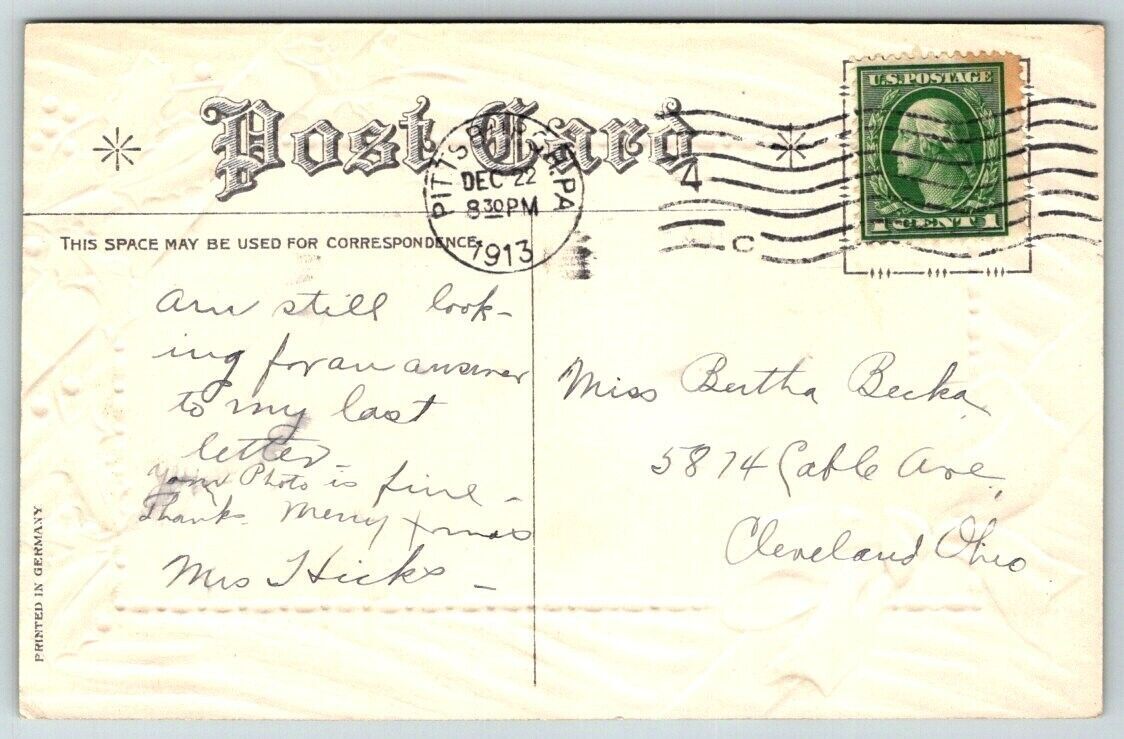 Post Card
U.S. POSTAGE
1 CENT 1
PITTSBURGH, PA
DEC 22
8 30 PM
1913
4
C
THIS SPACE MAY BE USED FOR CORRESPONDENCE.
Am still look-
ing for an answer
to my last
letter
Your Photo is fine -
Thanks. Merry Xmas
Mrs Hicks -
Miss Bertha Becka
5874 Cable Ave,
Cleveland Ohio
PRINTED IN GERMANY